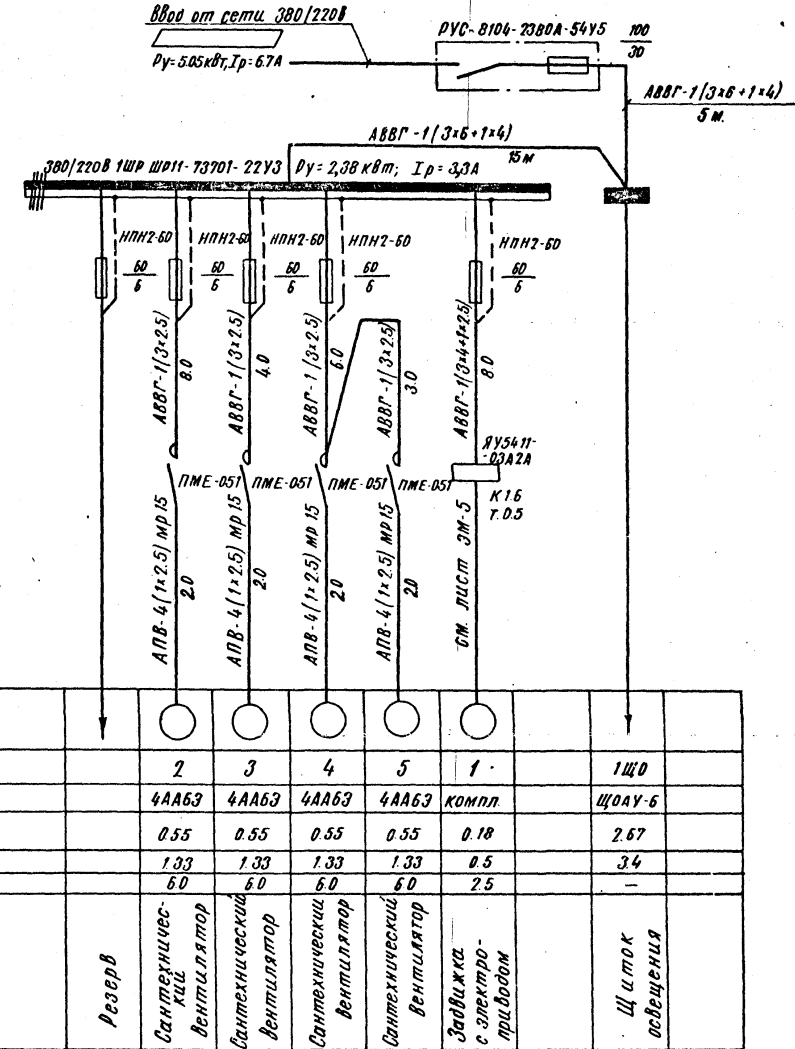 Ввод от сети 380/220В
Ру=5.05кВт, Iр=6.7А
РУС-8104-23В0А-54У5
100
30
АВВГ-1(3х6+1х4)
5 м.
АВВГ-1(3х6+1х4)
15м
380/220В 1ШР ШР11-73701-22У3 Ру=2,38 кВт; Iр=3,3А
НПН2-60
60
6
НПН2-60
60
6
НПН2-60
60
6
НПН2-60
60
6
НПН2-60
60
6
АВВГ-1(3х2.5)
8.0
АВВГ-1(3х2.5)
4.0
АВВГ-1(3х2.5)
6.0
АВВГ-1(3х2.5)
3.0
АВВГ-1(3х4+1х2.5)
8.0
ПМЕ-051
ПМЕ-051
ПМЕ-051
ПМЕ-051
ЯУ5411-
03А2А
К1.6
Т.0.5
АПВ-4(1х2.5) МР15
2.0
АПВ-4(1х2.5) МР15
2.0
АПВ-4(1х2.5) МР15
2.0
АПВ-4(1х2.5) МР15
2.0
см. лист ЭМ-5
2 3 4 5 1 1ЩО
4АА63 4АА63 4АА63 4АА63 компл. ЩОАУ-6
0.55 0.55 0.55 0.55 0.18 2.67
1.33 1.33 1.33 1.33 0.5 3.4
6.0 6.0 6.0 6.0 2.5 —
Резерв
Сантехничес-
кий
вентилятор
Сантехнический
вентилятор
Сантехнический
вентилятор
Сантехнический
вентилятор
Задвижка
с электро-
приводом
Щиток
освещения